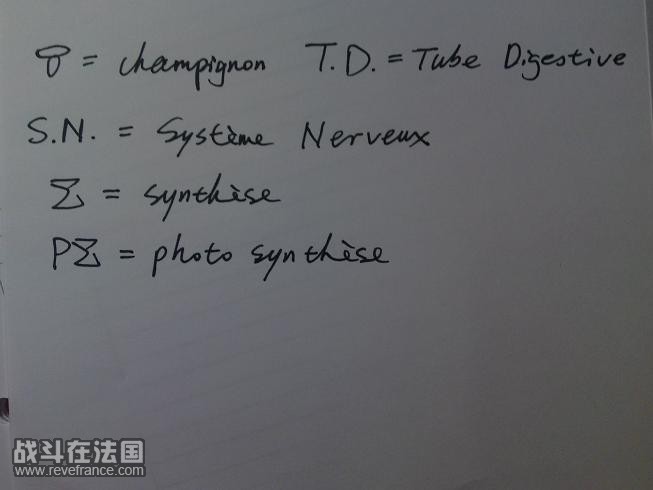 = champignon T.D. = Tube Digestive
S.N. = Système Nerveux
Σ = synthèse
PΣ = photo synthèse
战斗在法国
www.revefrance.com